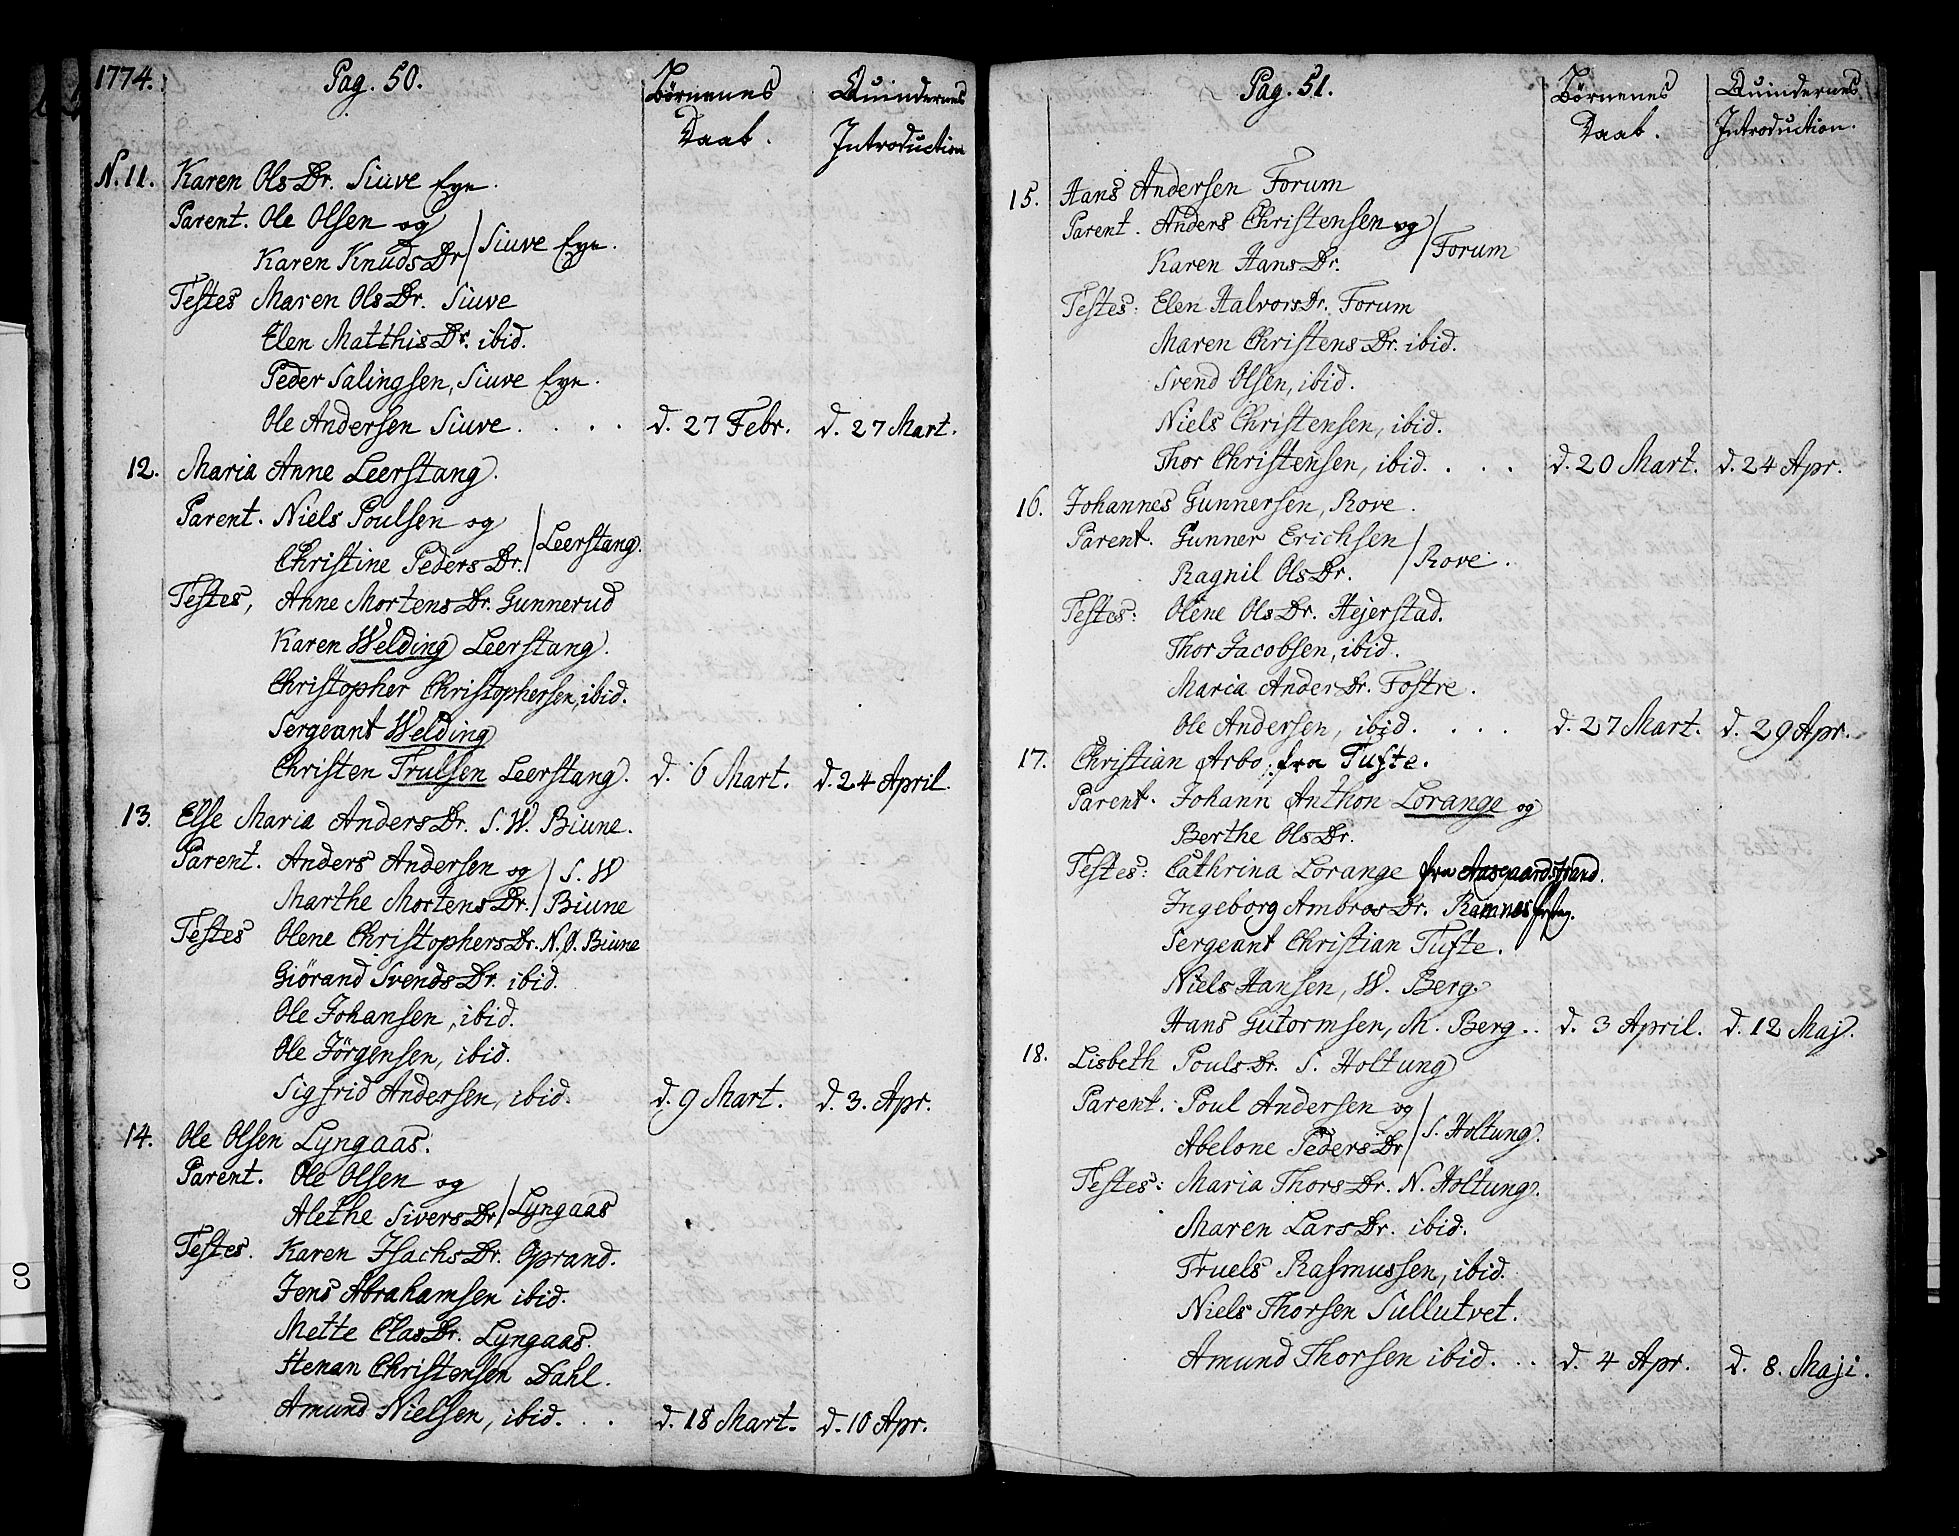 1774.
Pag. 50.
Børnenes
Daab.
Quindernes
Introduction
N. 11. Karen Ols Dr. Siuve Eye.
Parent. Ole Olsen og
Karen Knuds Dr Siuve Eye.
Testes Maren Ols Dr. Siuve
Elen Matthis Dr. ibid.
Peder Salingsen, Siuve Eye.
Ole Andersen Siuve . . . . d. 27 Febr. d. 27 Mart.
12. Maria Anne Leerstang.
Parent. Niels Poulsen og
Christine Peders Dr. Leerstang.
Testes, Anne Mortens Dr. Gunnerud
Karen Welding Leerstang.
Christopher Christophersen, ibid.
Sergeant Welding
Christen Trulsen Leerstang. d. 6 Mart. d. 24 April.
13. Else Maria Anders Dr. S. W. Biune.
Parent. Anders Andersen og S. W
Marthe Mortens Dr. Biune
Testes Olene Christophers Dr. N. Ø. Biune
Giörand Svends Dr. ibid.
Ole Johansen, ibid.
Ole Jörgensen, ibid.
Sigfrid Andersen, ibid. d. 9 Mart. d. 3. Apr.
14. Ole Olsen Lyngaas.
Parent. Ole Olsen og
Alethe Sivers Dr Lyngaas
Testes. Karen Isachs Dr. Oprand.
Jens Abrahamsen ibid.
Mette Clas Dr. Lyngaas.
Henan Christensen Dahl.
Amund Nielsen, ibid. . . d. 18 Mart. d. 10 Apr.
Pag. 51.
Børnenes
Daab.
Quindernes
Introduction.
15. Hans Andersen Forum
Parent. Anders Christensen og
Karen Hans Dr. Forum
Testes: Elen Halvors Dr. Forum
Maren Christens Dr. ibid.
Svend Olsen, ibid.
Niels Christensen, ibid.
Thor Christensen, ibid. . . . d. 20 Mart. d. 24 Apr.
16. Johannes Gunnersen, Rove.
Parent. Gunner Erichsen
Ragnil Ols Dr. Rove.
Testes: Olene Ols Dr. Hejerstad.
Thor Jacobsen, ibid.
Maria Ander Dr. Fostre.
Ole Andersen, ibid. . . . d. 27 Mart. d. 29 Apr.
17. Christian Arbo fra Tufte.
Parent. Johann Anthon Lorange og
Berthe Ols Dr.
Testes: Cathrina Lorange fra Aasgaardstrand.
Ingeborg Ambros Dr. Ramnes
Sergeant Christian Tufte.
Niels Hansen, W. Berg.
Hans Gutormsen, M. Berg . . d. 3 April. d. 12 Maj.
18. Lisbeth Pouls Dr. S. Holtung
Parent. Poul Andersen og
Abelone Peders Dr S. Holtung.
Testes: Maria Thors Dr. N. Holtung.
Maren Lars Dr. ibid.
Truels Rasmussen, ibid.
Niels Thorsen Sullutvet.
Amund Thorsen ibid. . . d. 4 Apr. d. 8. Maji.